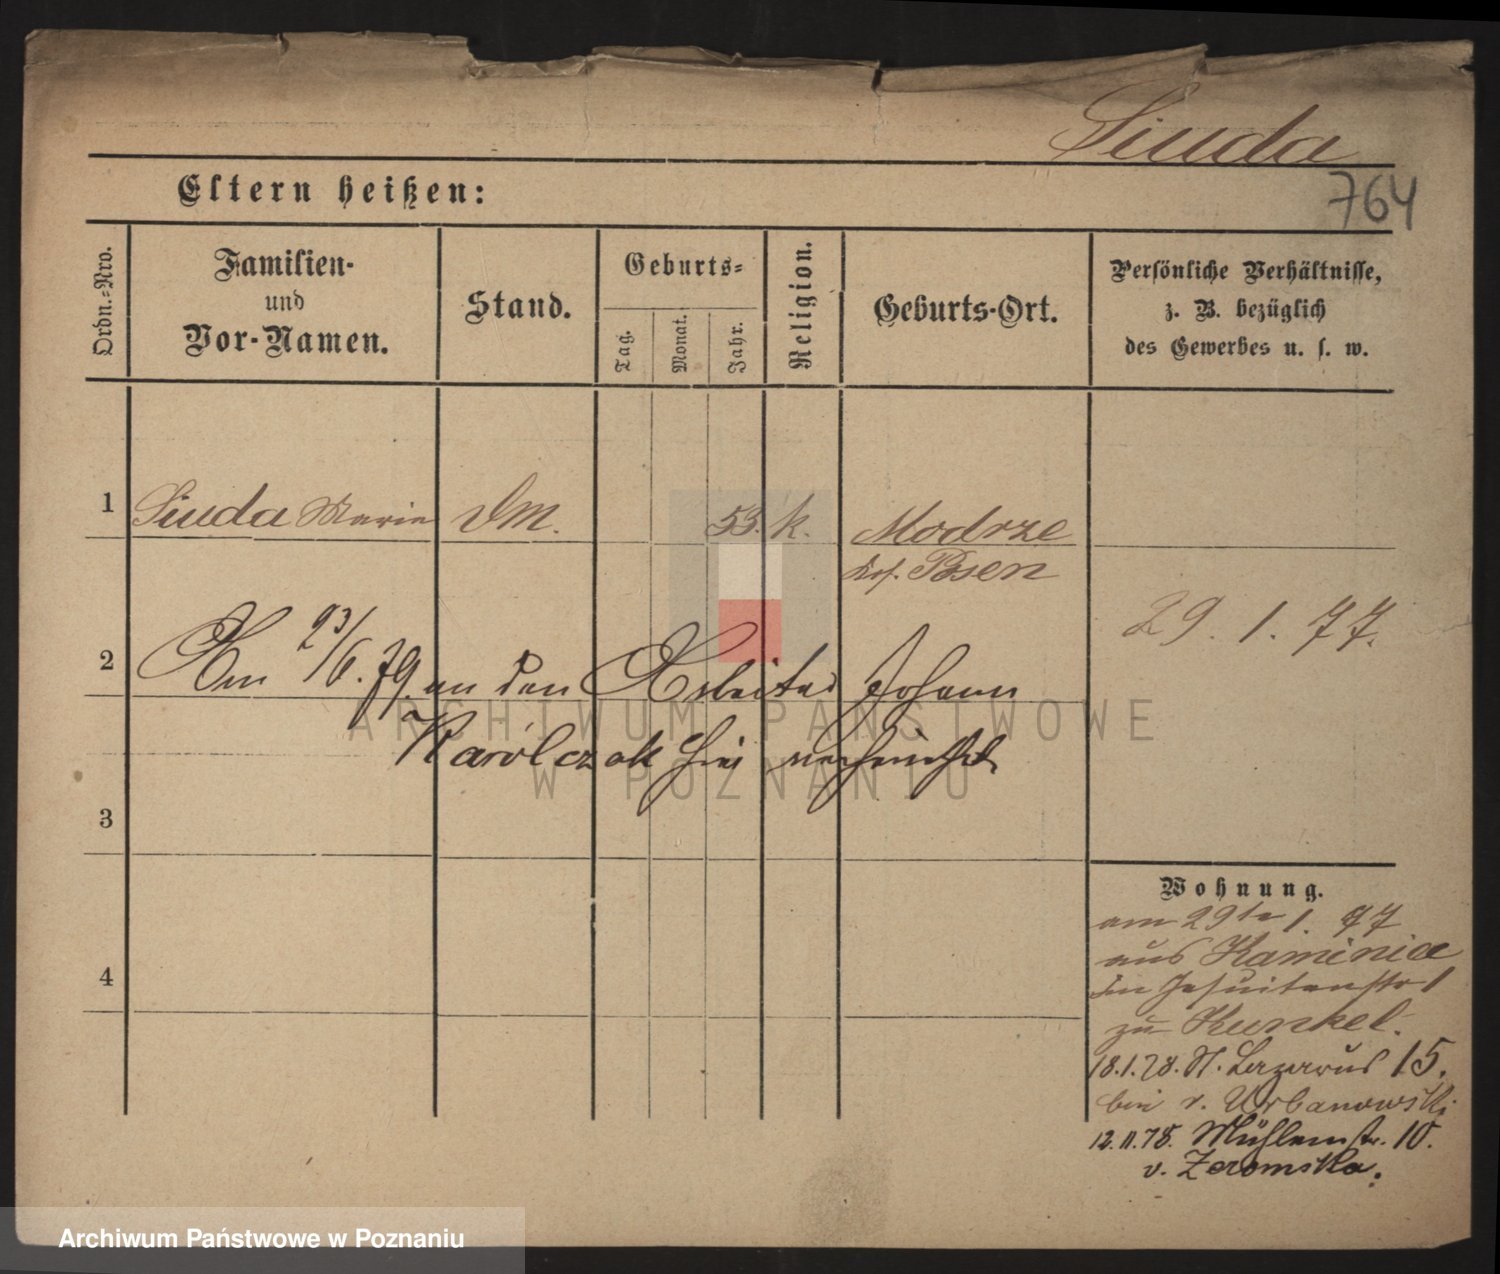 Siuda
764
Eltern heißen:
Ordn.-Nro.
Familien-
und
Vor-Namen.
Stand.
Geburts-
Tag.
Monat.
Jahr.
Religion.
Geburts-Ort.
Persönliche Verhältnisse,
z. B. bezüglich
des Gewerbes u. s. w.
1 Siuda Marie DM. 53. k. Modrze
Krs. Posen
29. 1. 77.
2 Am 23/6. 79. an den Arbeiter Johann
Karolczak hier verheirathet
3
4
Wohnung.
am 29te 1. 77
aus Kaminiec
in Jesuitenstr 1
zu Kunkel.
18.1.78. St. Lazarus 15.
bei v. Urbanowski
12.11.78. Mühlenstr. 10.
v. Zeromska.
ARCHIWUM PAŃSTWOWE
W POZNANIU
Archiwum Państwowe w Poznaniu